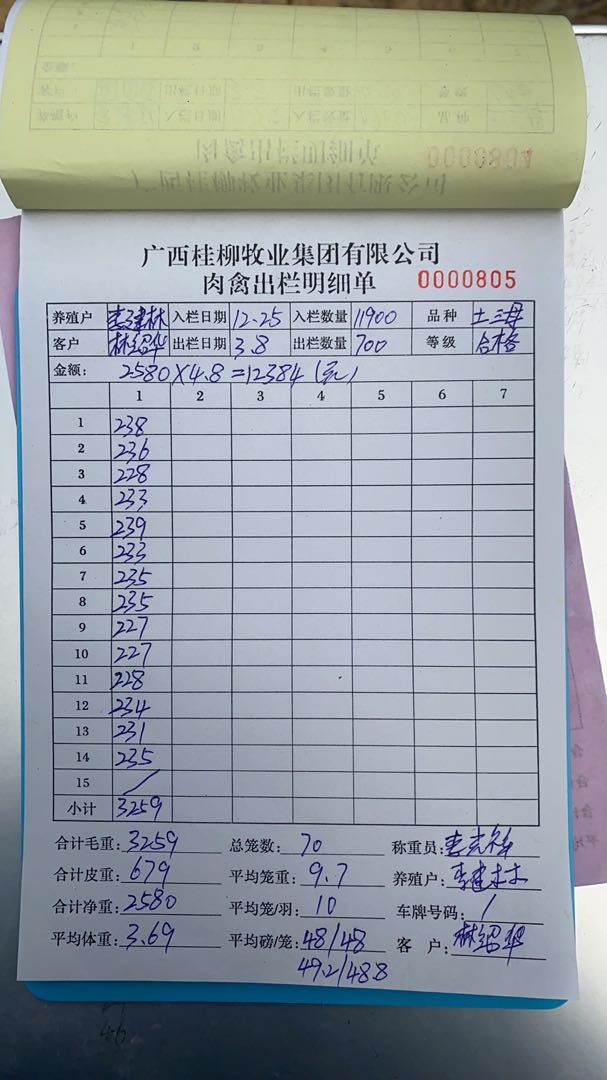 广西桂柳牧业集团有限公司
肉禽出栏明细单 0000805
养殖户 李建林 入栏日期 12.25 入栏数量 11900 品种 土三母
客户 林绍华 出栏日期 3.8 出栏数量 700 等级 合格
金额: 2580×4.8=12384(元)
1 2 3 4 5 6 7
1 238
2 236
3 228
4 233
5 239
6 233
7 235
8 235
9 227
10 227
11 228
12 234
13 231
14 235
15 /
小计 3259
合计毛重: 3259 总笼数: 70 称重员:
合计皮重: 679 平均笼重: 9.7 养殖户: 李建林
合计净重: 2580 平均笼/羽: 10 车牌号码: /
平均体重: 3.69 平均磅/笼: 48/48 客 户: 林绍华
49.2/48.8